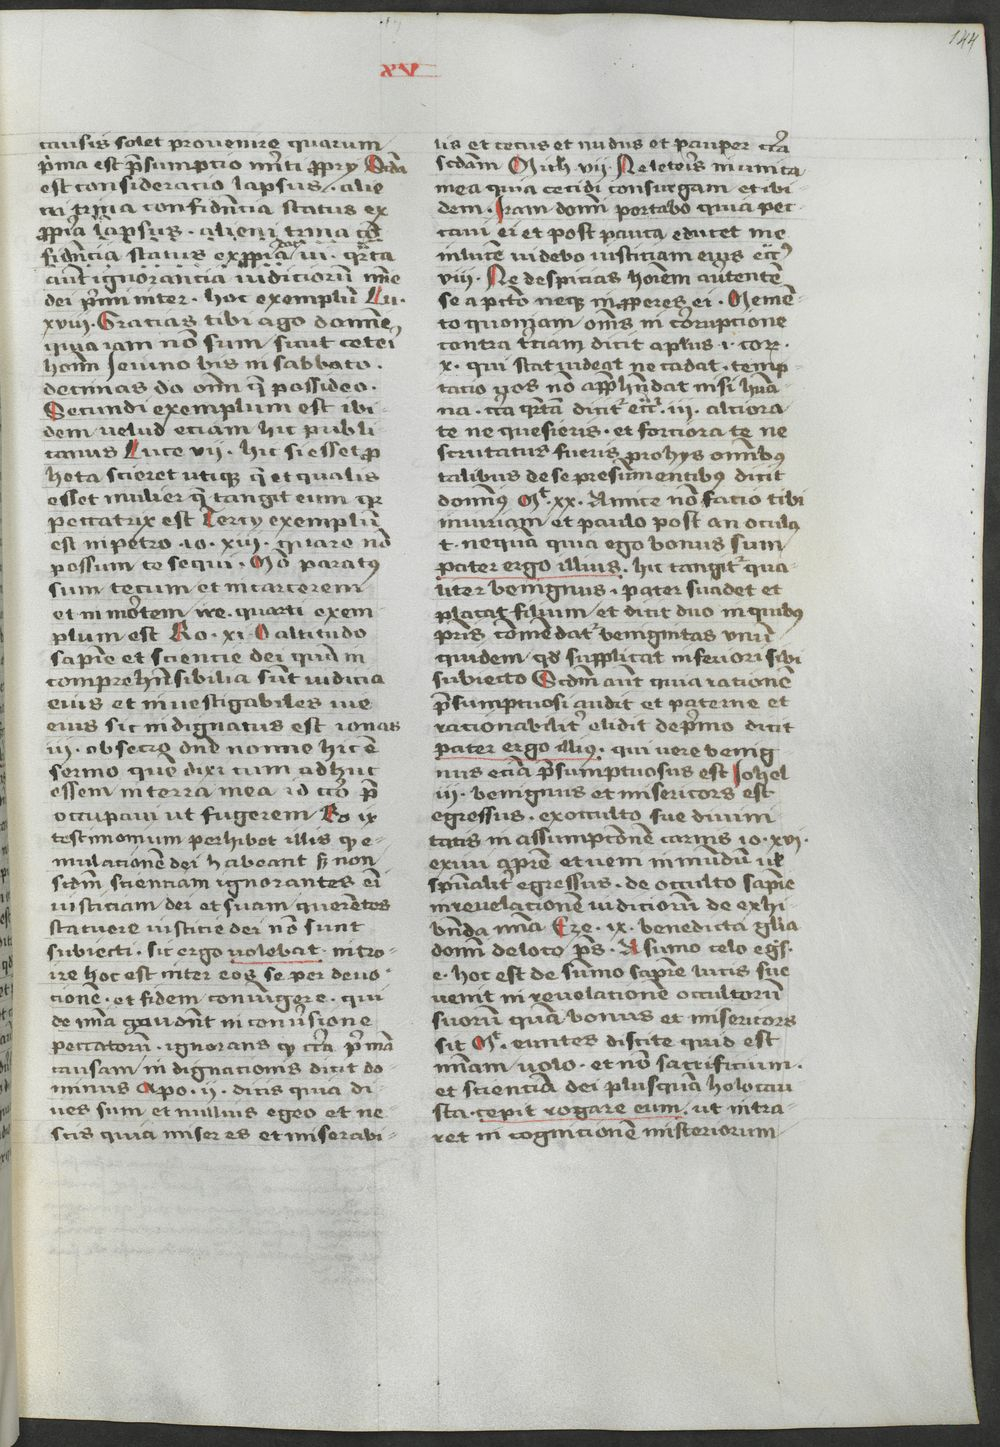 144
xv
causis solet prouenire quarum
p̓ma est p̄sumpcio m̓iti ꝓpry Scd̄a
est consideracio lapsus . alie
ni trina confidn̄cia status ex
ꝓpria lapsus . alieni trina cō
fidn̄cia status exꝓpria iii . q̄rta
aūt ignorancia iudiciorū mīe
dei p̓mi inter . hoc exemplū Lu .
xviii . Gracias tibi ago domīe
quia iam nō sum sicut ceteri
homī Ieiuno bis in sabbato .
decimas do om̄ q̄ possideo .
Secundi exemplum est ibi
dem velud eciam hic publi
canus Luce vii . hic si esset ꝓ
heta sciret utiqꝫ q̄ et qualis
esset mulier q̄ tangit eum qꝛ
peccatrix est Tercy exemplū
est in petro . io . xiii . quare nō
possum te sequi . Mō paratꝰ
sum tecum et in carcerem
et in mo̓tem ire . quarti exem
plum est Ro . xi . O altitudo
sapīe et sciencie dei quā in
comprehn̄sibilia sūt iudicia
eius et inuestigabiles uie
eius sic indignatus est ionas
iii . obsecro dn̄e nonne hic ē
sermo quē dixi cum adhuc
essem in terra mea id cco p̄
occupaui ut fugerem Ro ix
testimonium perhibet illis qꝫ e
mulacionē dei habeant sꝫ non
scdm̄ scienciam ignorantes eī
iusticiam dei et suam querētes
statuere iusticie dei nō sunt
subiecti . sic ergo uolebat intro
ire hoc est inter eos se per deuo
cionē . et fidem coniūgere . qui
de mīa gaudēt in conu̓sione
peccatorū . ignorans qꝫ cc̄a p̓mā
causam indignacionis dicit do
minus Apo . ii . dicis quia di
ues sum et nullius egeo et ne
scis quia miser es et miserabi
lis et cecus et nudus et pauper cc̄a
scdām Mich . vii . Ne leteris inimica
mea quia cecidi consurgam et ibi
dem . Iram domī portabo quia pec
caui ei et post pauca educet me
in lucē uidebo iusticiam eius ecc̄ꝰ
viii . Ne despicias hoīem auertentē
se a pcc̄o neqꝫ inꝓperes ei . Memē
to quoniam om̄s in co̓rupcione
contra t̓ciam dicit aplus i . cor .
x . qui stat uideat ne cadat . temp
tacio uos nō app̄hn̄dat nisi huā
na . cc̄a q̄rtā dicit᷑ ecc̄i . iii . alciora
te ne quesieris . et forciora te ne
scrutatus fueris pro hys om̄ibꝰ
talibus de se presūmentibꝰ dicit
domīꝰ Mᵗ . xx . Amice nō facio tibi
iniuriam et paulo post an oculꝰ
t . nequā quia ego bonus sum
pater ergo illius . hic tangit᷑ qua
liter benignus . pater suadet et
placat filium et dicit duo in quibꝰ
pr̄is cōmēdat᷑ benignitas vnū
quidem qd̓ supplicat inferiori sibi
subiecto Scdm̄ aūt quia racionē
p̄sumptuosi audit et paterne et
racionabilit̓ elidit de p̓mo dicit
pater ergo illiꝰ . qui uere benig
nus eciā p̄sumptuosus est Iohel
iii . benignus et misericors est
egressus . ex occulto sue diuini
tatis in assumpcōnē carnis io . xvi .
exiui a pr̄e et ueni in mūdū uꝉ
spūalit̓ egressus . de occulto sapīe
in reuelacionē iudiciorū de exhi
bn̄da mīa Eze . ix . benedicta gꝉia
domī de loco p̄s . A sūmo celo egs̄ .
e . hoc est de sūmo sapīe lucis sue
uenit in reuelacionē occultorū
suorū quā bonus et misericors
sit Mᵗ . euntes discite quid est
mīam uolo . et nō sacrificium .
et scienciā dei plusquā holocau
sta . cepit rogare eum . ut intra
ret in cognicionē misteriorum